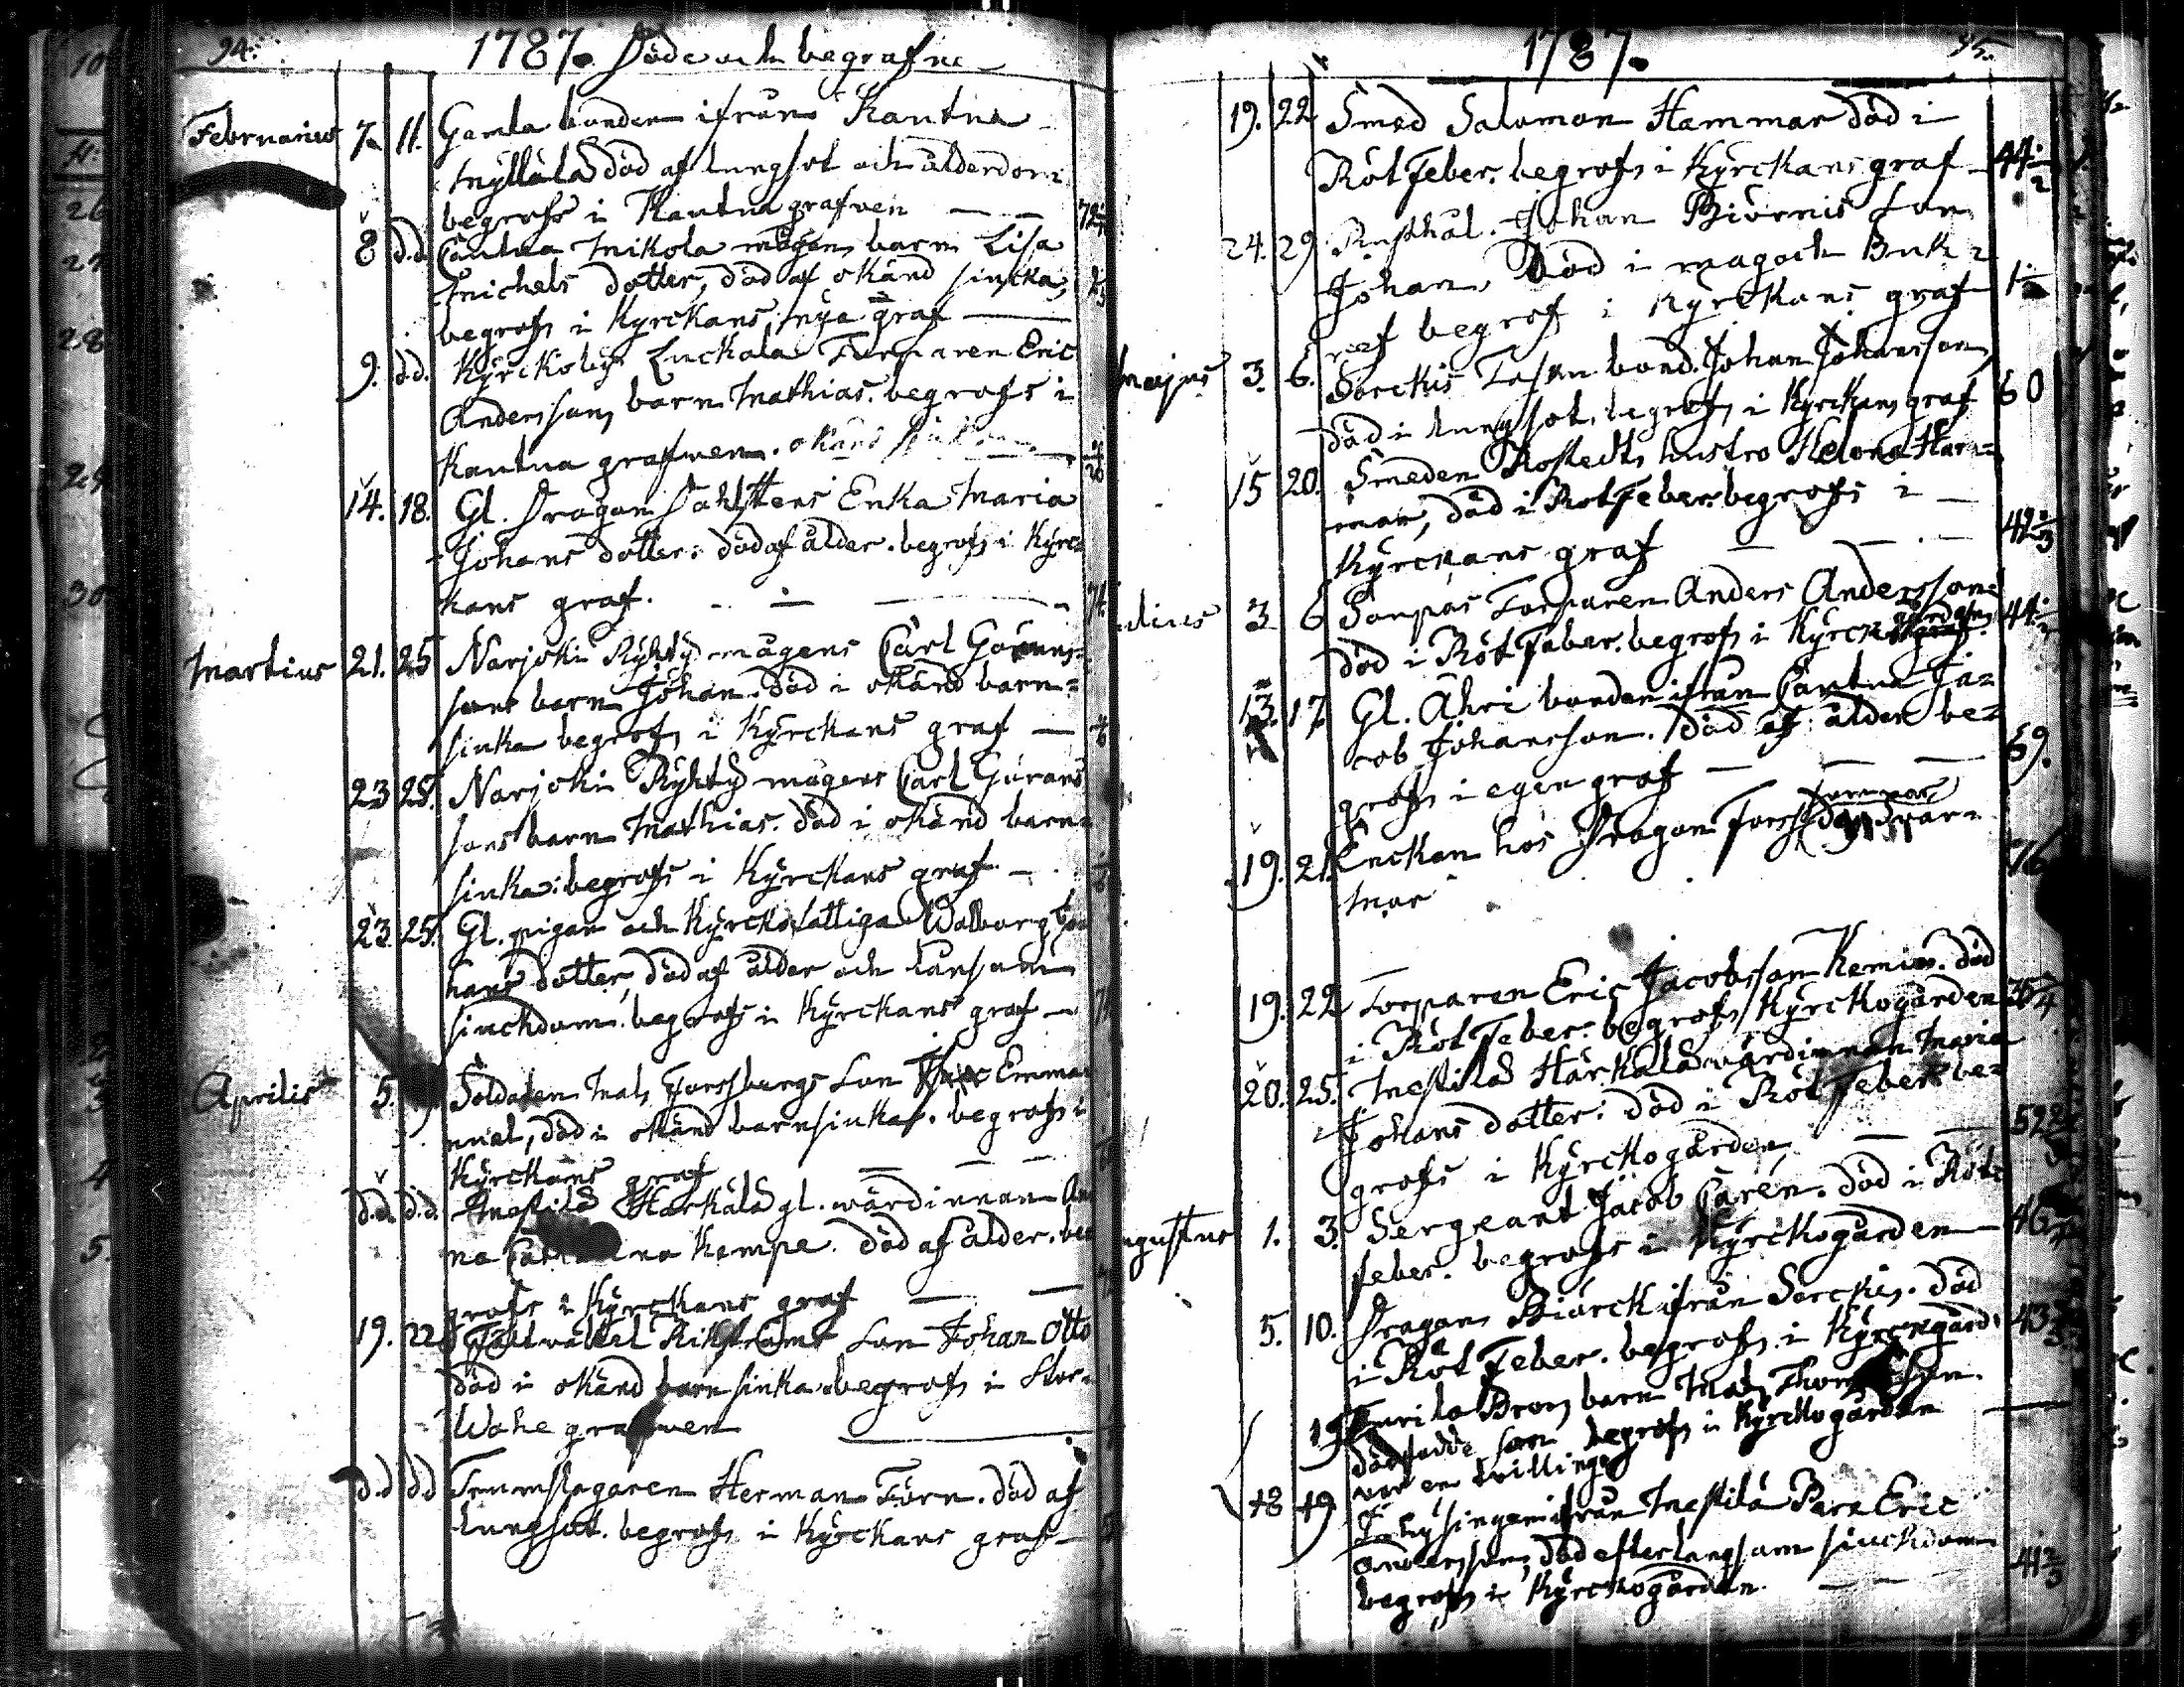 94.
1787. Döde och begrafne
Februarius 7. 11. Gamla bonden ifrån Kantna
Myllälä död af lungsot och ålderdom
begrofs i Kantna grafven — — 72
8 d.d. Cantna Mikola mågens barn Lisa
Michels dotter, död af okänd siucka,
begrofs i Kyrckans nya graf —
9. d.d. Kyrckoby Luckala Torparen Eric
Anderssons barn Mathias. begrofs i
Kantna grafven. okänd
14. 18. Gl. Dragon Dahlstens Enka Maria
Johans dotter: död af ålder. begrofs i Kyrc=
kans graf. — — 74
Martius 21. 25 Narjoki Ryhty mågens Carl Görans=
sons barn Johan. död i okänd barn=
siuka begrofs i Kyrckans graf —
23 25. Narjoki Ryhty mågens Carl Görans
sons barn Mathias. död i okänd barn=
siuka: begrofs i Kyrckans graf —
23. 25. Gl. pigan och Kyrckofattiga Walborg
hans dotter, död af ålder och långsam
siuckdom. begrofs i Kyrckans graf —
Aprilis 5. Soldaten Mats Forssbergs Son Emma
nuel, död i okänd barnsiuka. begrofs i
Kyrckans graf — —
d.d. d.d. Mestilä Härkälä gl. wärdinnan An
na Kempe. död af ålder. be
grofs i Kyrckans graf — —
19. 22 Fältwäbel Rikströms Son Johan Otto
död i okänd barnsiuka begrofs i Stor=
Wahe grafwen
d.d d.d Trumslagaren Herman Törn. död af
lungsot. begrofs i Kyrckans graf —
1787. 95.
19. 22 Smed Salomon Hammar död i
Röt Feber. begrofs i Kyrckans graf — 44 1/2
24. 29. Rusthål. Johan Biörnis Son
Johan, Död i mag och Buk
ref begrof i Kyrckans graf
Majus 3. 6. Sorckis bond. Johan Johansson,
död i lungsot, begrofs i Kyrckans graf 60
15 20. Smeden Rostedts hustro Helena Ham=
mar, död i Röt Feber begrofs i —
Kyrckans graf — — 42 2/3
ulius 3 6 Sorpas Torparen Anders Andersson
död i Röt Feber. begrofs i Kyrck 44
13. 17 Gl. Ähri bonden ifrån Cantna Ja=
cob Johansson. Död af ålder be=
grofs i egen graf — — 69.
19. 21. Enckan hos Dragon
mor 76
19. 22 Torparen Eric Jacobsson Kemis. död
i Röt Feber. begrofs Kyrckogården 35 3/4
20. 25. Mestilä Härkälä wärdinnan Maria
Johans dotter: död i Röt Feber be=
grofs i Kyrckogården — — 52
ugustus 1. 3. Sergeant Jacob Carén. död i Röt=
feber. begrofs i Kyrckogården — 46
5. 10. Dragon Biörck ifrån Sorckis. död
i Röt Feber. begrofs i Kyrckogård. 43
19 barn Mats
dödfödde son begrofs i Kyrckogården —
var en tvilling
18 19 Inhysingen ifrån Mestilä Eric
Andersson, död efter langsam siuckdom
begrofs i Kyrckogården. — — 41 2/3